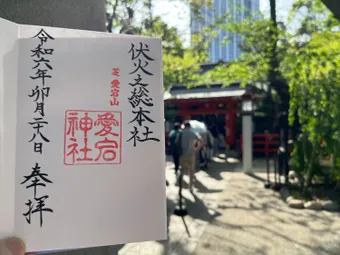 伏火之総本社
芝 愛宕山
愛宕
神社
奉拝
令和六年卯月二十八日